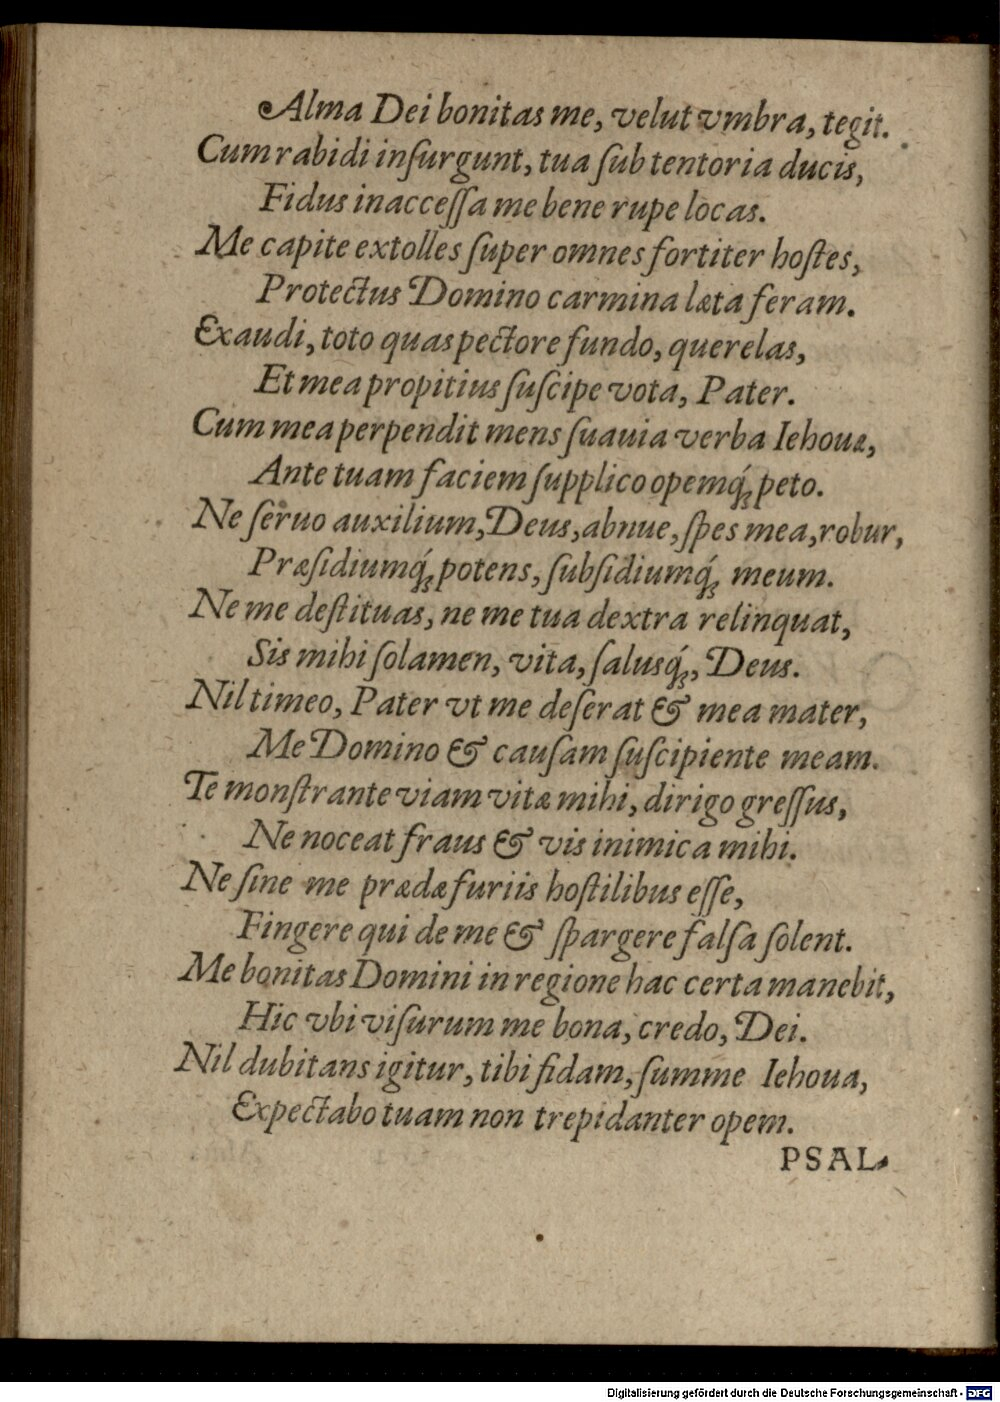 Alma Dei bonitas me, velut vmbra, tegit.
Cum rabidi inſurgunt, tua ſub tentoria ducis,
Fidus inacceſſa me bene rupe locas.
Me capite extolles ſuper omnes fortiter hoſtes,
Protectus Domino carmina læta feram.
Exaudi, toto quas pectore fundo, querelas,
Et mea propitius ſuſcipe vota, Pater.
Cum mea perpendit mens ſuauia verba Iehouæ,
Ante tuam faciem ſupplico opemq́; peto.
Ne ſeruo auxilium, Deus, abnue, ſpes mea, robur,
Præſidiumq́; potens, ſubſidiumq́; meum.
Ne me deſtituas, ne me tua dextra relinquat,
Sis mihi ſolamen, vita, ſalusq́;, Deus.
Nil timeo, Pater vt me deſerat & mea mater,
Me Domino & cauſam ſuſcipiente meam.
Te monſtrante viam vitæ mihi, dirigo greſſus,
Ne noceat fraus & vis inimica mihi.
Ne ſine me prædæ furiis hoſtilibus eſſe,
Fingere qui de me & ſpargere falſa ſolent.
Me bonitas Domini in regione hac certa manebit,
Hic vbi viſurum me bona, credo, Dei.
Nil dubitans igitur, tibi fidam, ſumme Iehoua,
Expectabo tuam non trepidanter opem.
PSAL-
Digitalisierung gefördert durch die Deutsche Forschungsgemeinschaft - DFG